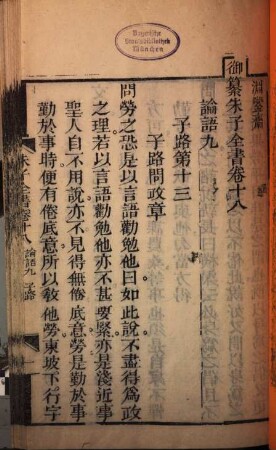 Bayerische
Staatsbibliothek
München
御纂朱子全書卷十八
論語九
子路第十三
子路問政章
問勞之恐是以言語勸勉他曰如此說不盡得為政
之理若以言語勸勉他亦不甚要緊亦是淺近事
聖人自不用說亦不見得無倦底意勞是勤於事
勤於事時便有倦底意所以敎他勞東坡下行字
朱子全書卷十八 論語九 子路